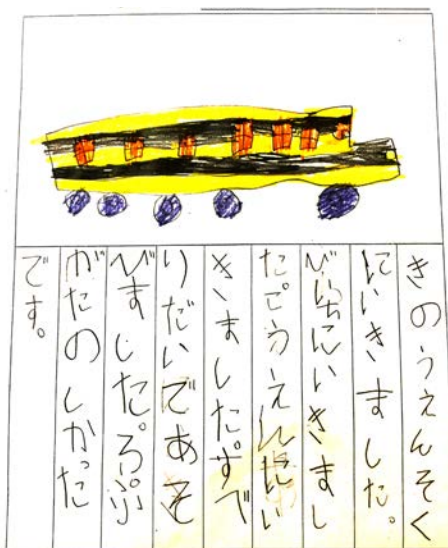 きのうえんそく
にいきました。
びいちにいきまし
たこうえんにい
きました。すべ
りだいであそ
びました。ろぷ
がたのしかった
です。